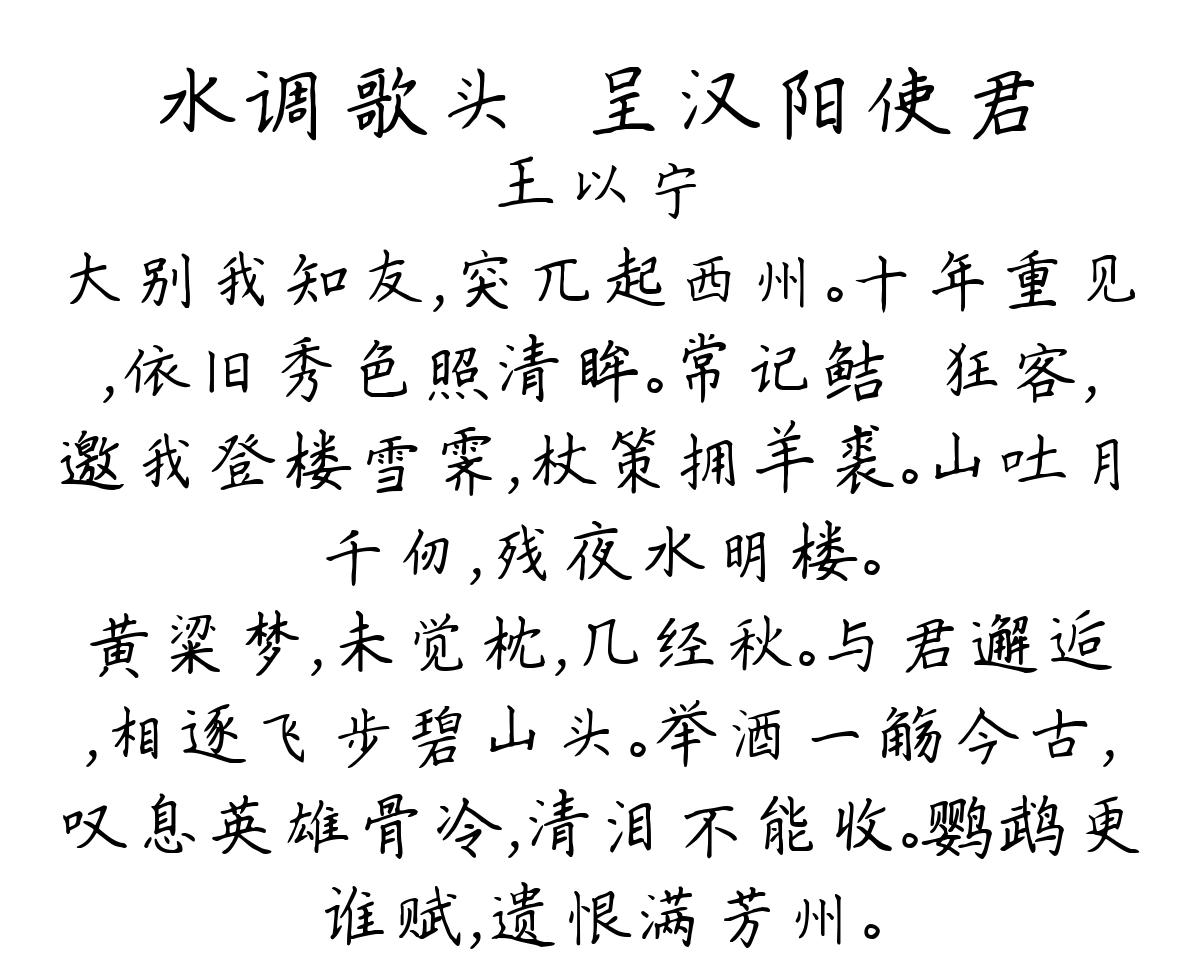 水调歌头 呈汉阳使君
王以宁
大别我知友,突兀起西州。十年重见
,依旧秀色照清眸。常记鲒 狂客,
邀我登楼雪霁,杖策拥羊裘。山吐月
千仞,残夜水明楼。
黄粱梦,未觉枕,几经秋。与君邂逅
,相逐飞步碧山头。举酒一觞今古,
叹息英雄骨冷,清泪不能收。鹦鹉更
谁赋,遗恨满芳州。